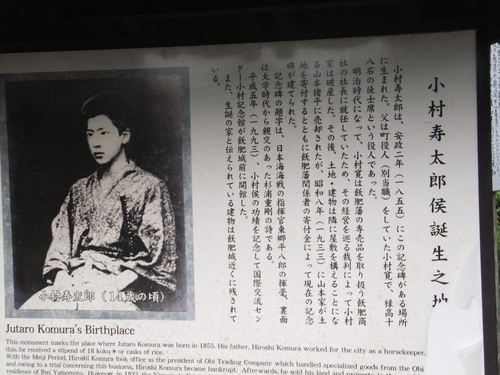 小村寿太郎侯誕生之地
小村寿太郎は、安政二年(一八五五)にこの記念碑がある場所
に生まれた。父は町役人(別当職)をしていた小村寛で、禄高十
八石の徒士席という役人であった。
明治時代になって、小村寛は飫肥藩の専売品を取り扱う飫肥商
社の社長に就任していたため、その経営を巡る裁判によって小村
家は破産した。その後、土地・建物は隣に屋敷を構えることにな
る山本猪平に売却されたが、昭和八年(一九三三)に山本家が土
地を寄付するとともに飫肥藩関係者の寄付金によって現在の記念
碑が建てられた。
記念碑の題字は、日本海海戦の指揮官東郷平八郎の揮毫、裏面
は大学時代から親交のあった杉浦重剛の詩である。
平成五年(一九九三)、小村侯の功績を記念して国際交流セン
ター小村記念館が飫肥城前に開館した。
また、生誕の家と伝えられている建物は飫肥城近くに残されて
いる。
小村寿太郎(14歳の頃)
Jutaro Komura's Birthplace
This monument marks the place where Jutaro Komura was born in 1855. His father, Hiroshi Komura worked for the city as a horsekeeper,
this, he received a stipend of 18 koku ※ or casks of rice.
With the Meiji Period, Hiroshi Komura's office as the president of Obi Trading Company which handled specialized goods from the Obi
and.owing to a trial concerning this business, Hiroshi Komura became bankrupt. Afterwards, he sold his land and
residence of Ihei Yamamoto. However, in 1933, the